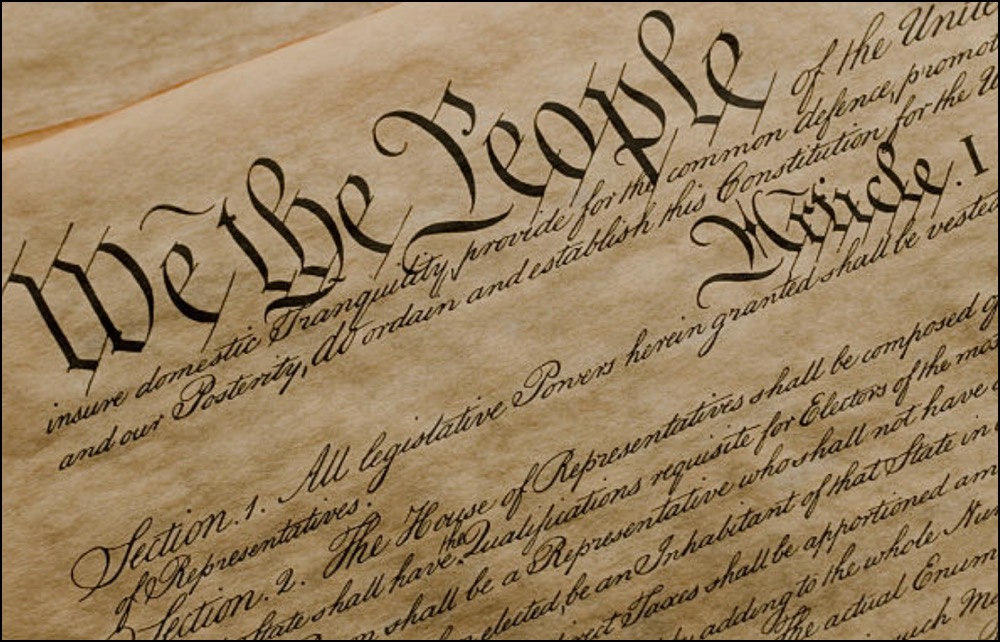 We the People of the Unite
insure domestic Tranquility, provide for the common defence, promot
and our Posterity, do ordain and establish this Constitution for the U
Article. I
Section. 1. All legislative Powers herein granted shall be vested
of Representatives.
Section. 2. The House of Representatives shall be composed o
State shall have the Qualifications requisite for Electors of the mos
shall be a Representative who shall not have
elected, be an Inhabitant of that State in
rect Taxes shall be apportioned am
adding to the whole Num
The actual Enum
such